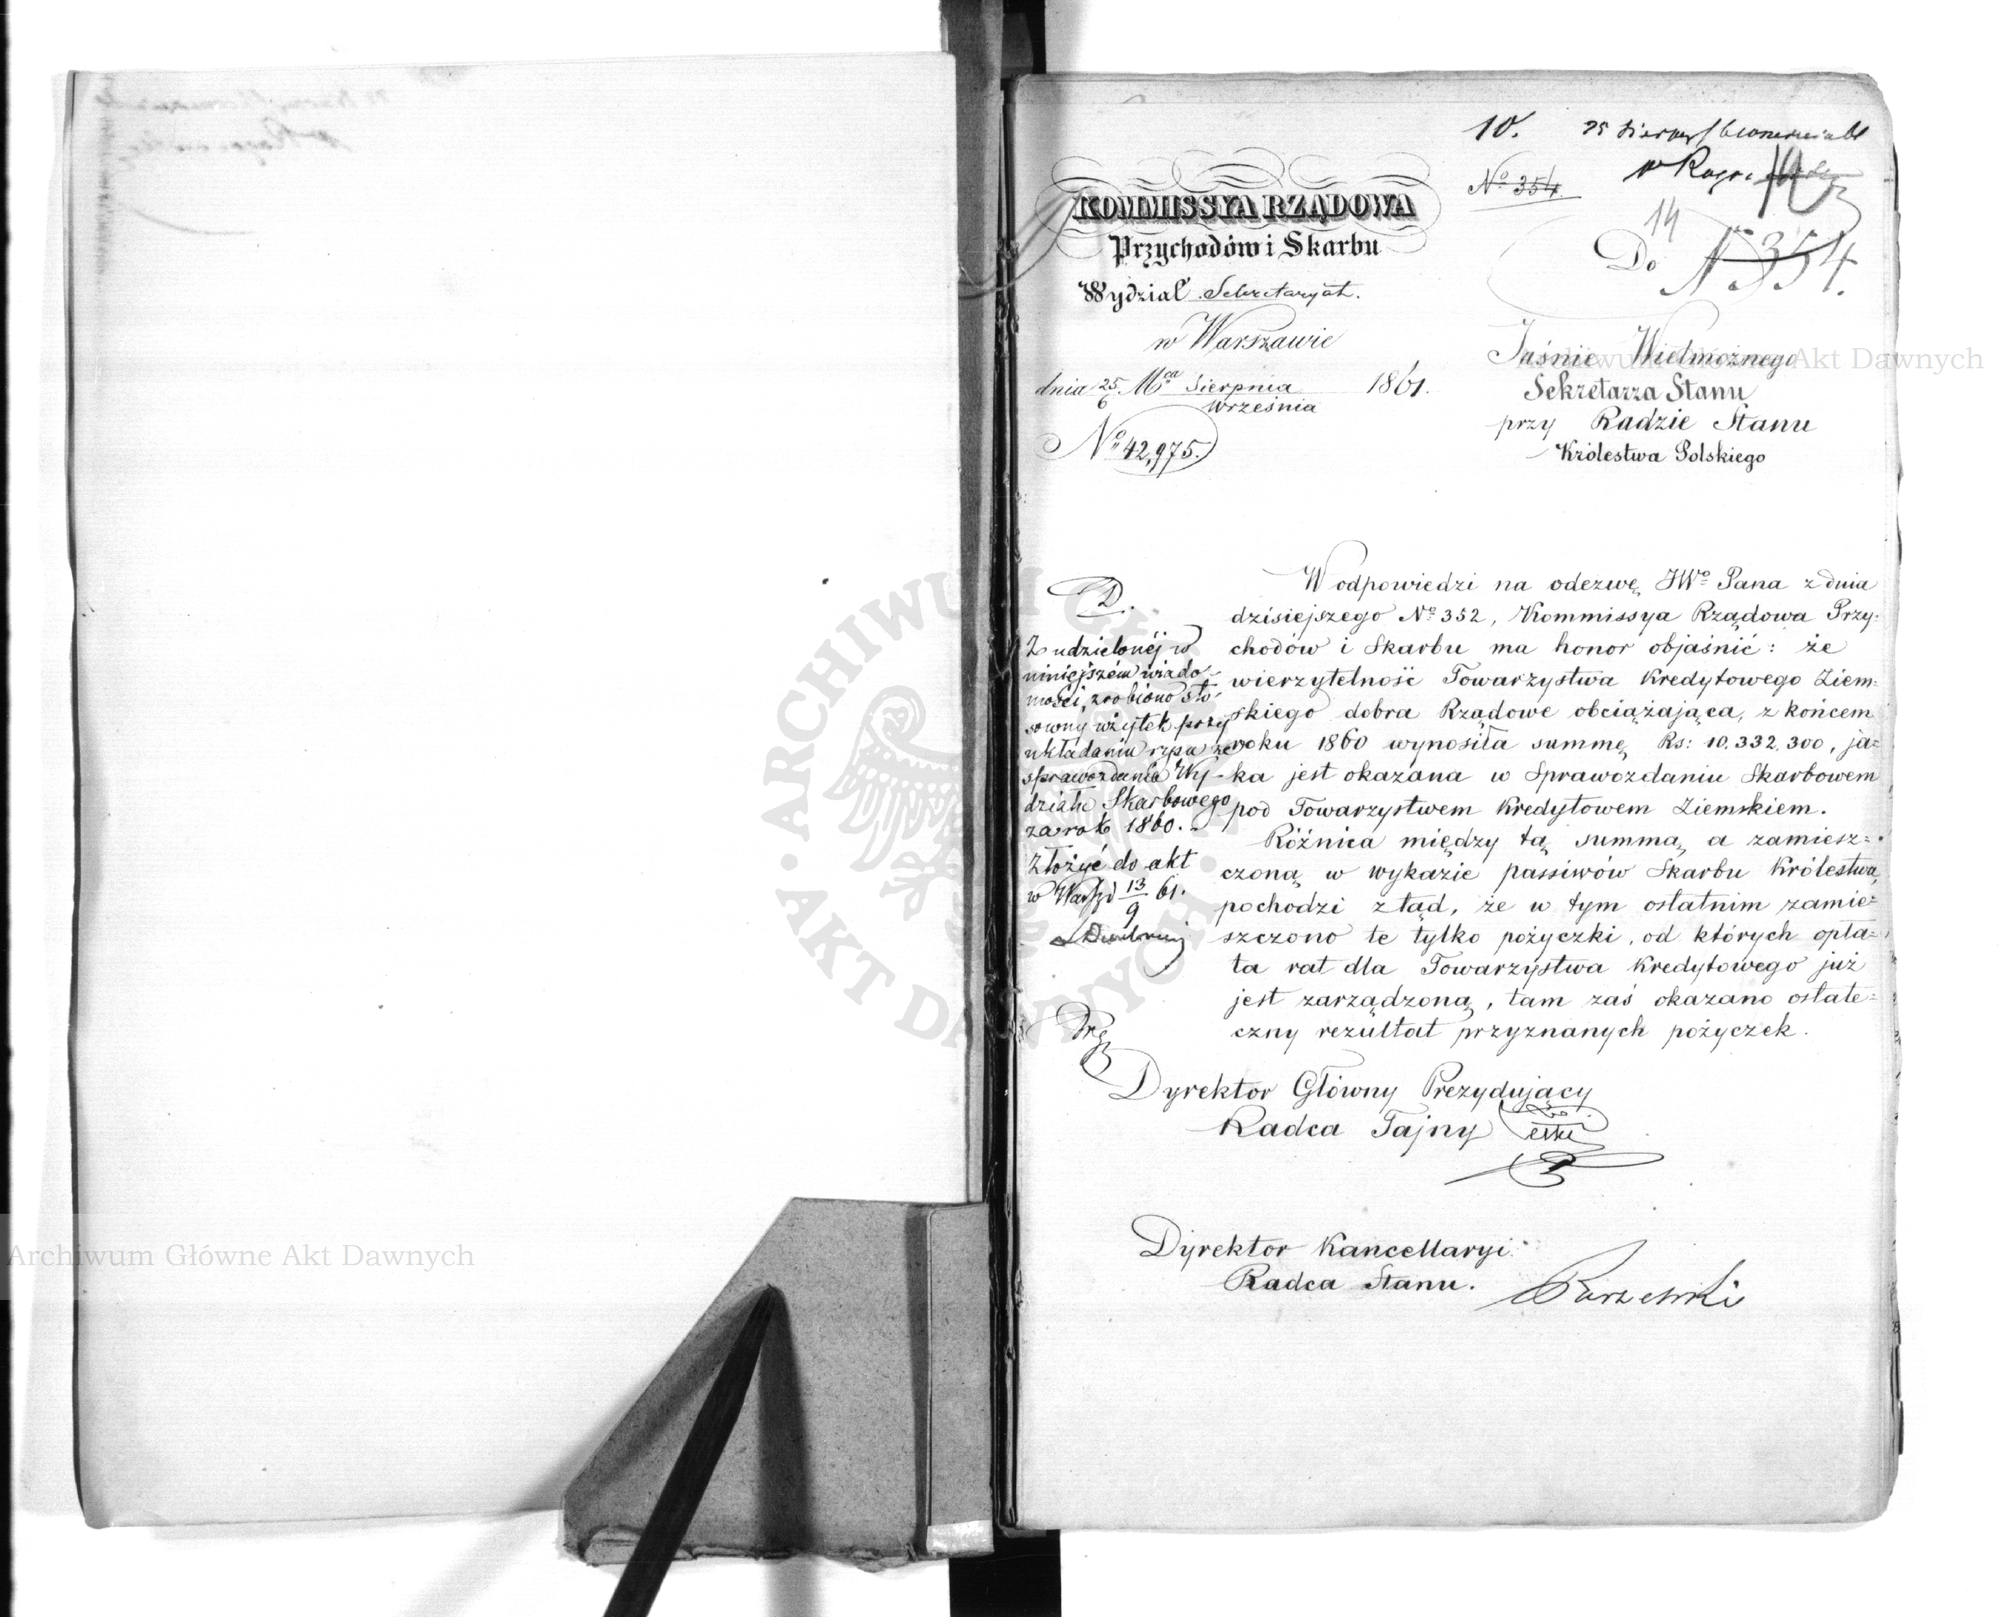 10.
No 354
14
Do No 354.
KOMMISSYA RZĄDOWA
Przychodów i Skarbu
Wydział Sekretaryat.
w Warszawie
dnia 25/6 Mca Sierpnia/Września 1861.
No 42,975.
Jaśnie Wielmożnego
Sekretarza Stanu
przy Radzie Stanu
Królestwa Polskiego
W odpowiedzi na odezwę JWo Pana z dnia
dzisiejszego No 352, Kommissya Rządowa Przy-
chodów i Skarbu ma honor objaśnić: że
wierzytelność Towarzystwa Kredytowego Ziem-
skiego dobra Rządowe obciążająca, z końcem
roku 1860 wynosiła summę Rs: 10.332.300, ja-
ka jest okazana w Sprawozdaniu Skarbowem
pod Towarzystwem Kredytowem Ziemskiem.
Różnica między tą summą a zamiesz-
czoną w wykazie passiwów Skarbu Królestwa,
pochodzi ztąd, że w tym ostatnim zamie-
szczono te tylko pożyczki, od których opła-
ta rat dla Towarzystwa Kredytowego już
jest zarządzoną, tam zaś okazano ostate-
czny rezultat przyznanych pożyczek.
D.
Z udzielonéj w
niniejszém wiado-
mości, zrobiono sto-
sowny użytek przy
układaniu rzpu ze
sprawozdania Wy-
działu Skarbowego
za rok 1860.
Złożyć do akt
w Warsz d 13/9 61.
Dyrektor Główny Prezydujący
Radca Tajny
Dyrektor Kancellaryi
Radca Stanu.
Archiwum Główne Akt Dawnych
Archiwum Główne Akt Dawnych
ARCHIWUM GŁÓWNE AKT DAWNYCH